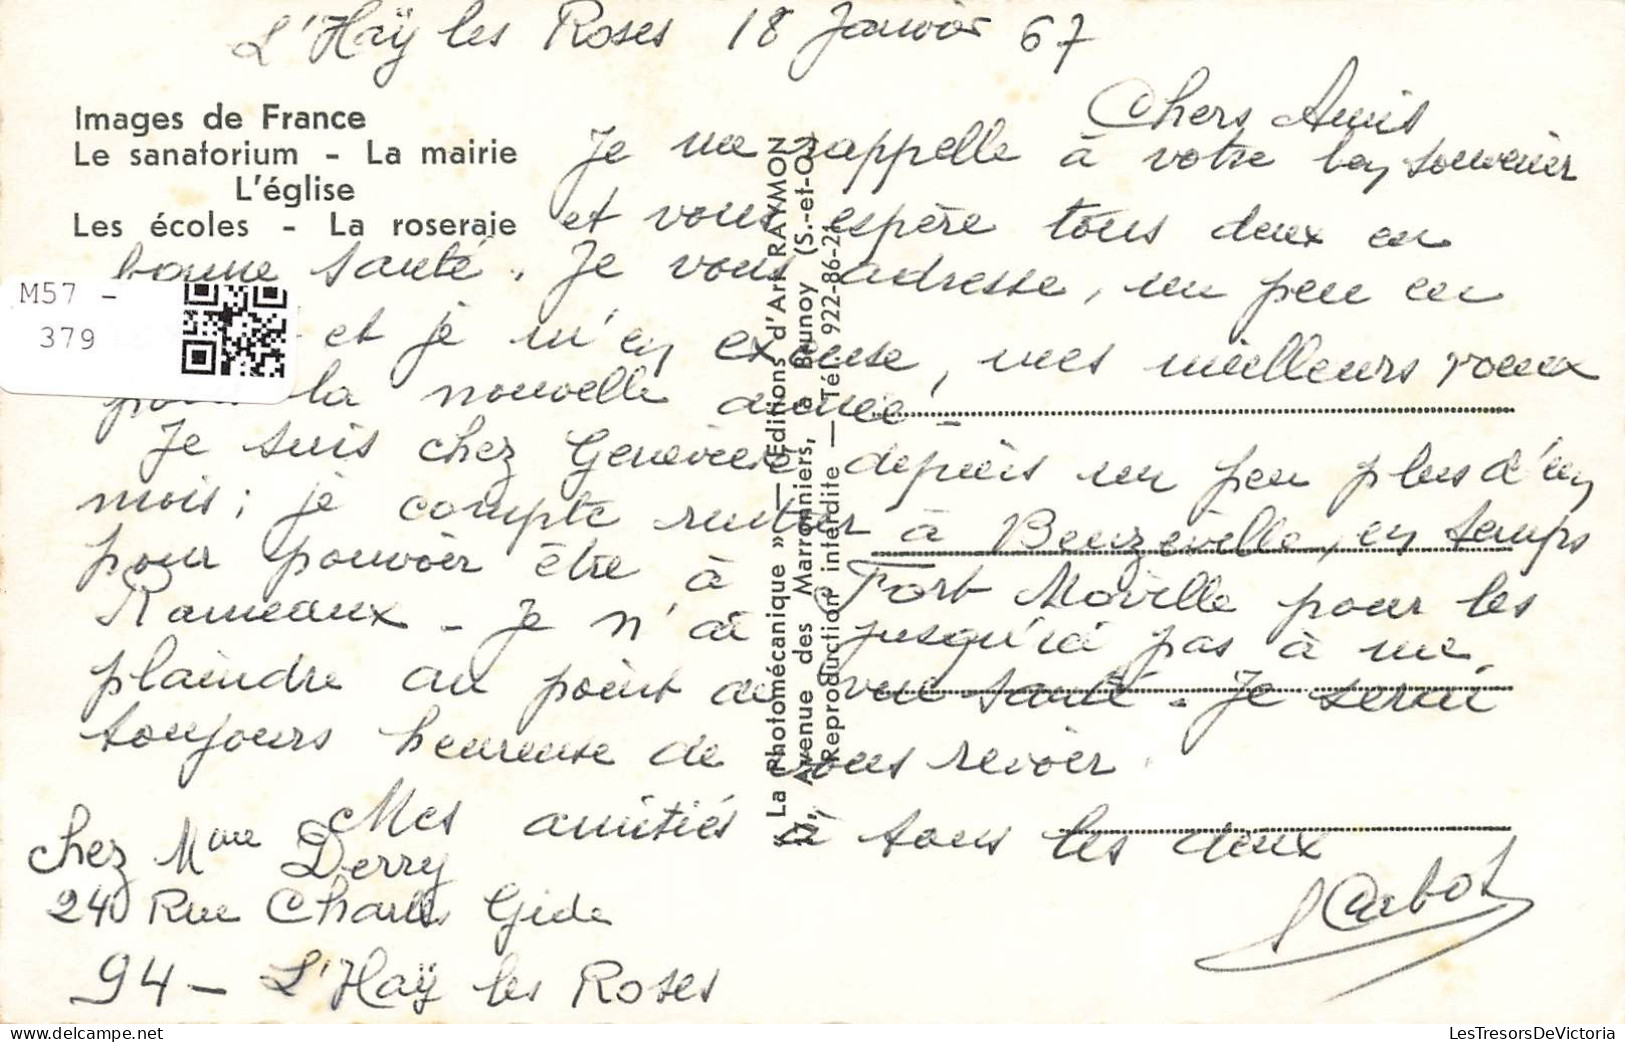 L'Haÿ les Roses 18 Janvier 67
Images de France
Le sanatorium - La mairie
L'église
Les écoles - La roseraie
Chers Amis
Je me rappelle à votre bon souvenir
et vous espère tous deux en
bonne santé. Je vous adresse, un peu en
et je m'en excuse, mes meilleurs voeux
pour la nouvelle année -
Je suis chez Geneviève depuis un peu plus d'un
mois ; je compte rentrer à Beuzeville, en temps
pour pouvoir être à Fort Moville pour les
Rameaux - Je n'ai jusqu'ici pas à me
plaindre au point de vue santé - Je serai
toujours heureuse de vous revoir.
Mes amitiés à tous les deux
Carbot
chez Mme Derry
24 Rue Charles Gide
94 - L'Haÿ les Roses
« La Photomécanique » — Editions d'Art RAYMON
Avenue des Marronniers, à Brunoy (S.-et-O.)
Reproduction interdite — Tél. 922-86-21
M57 -
379
LesTresorsDeVictoria
www.delcampe.net